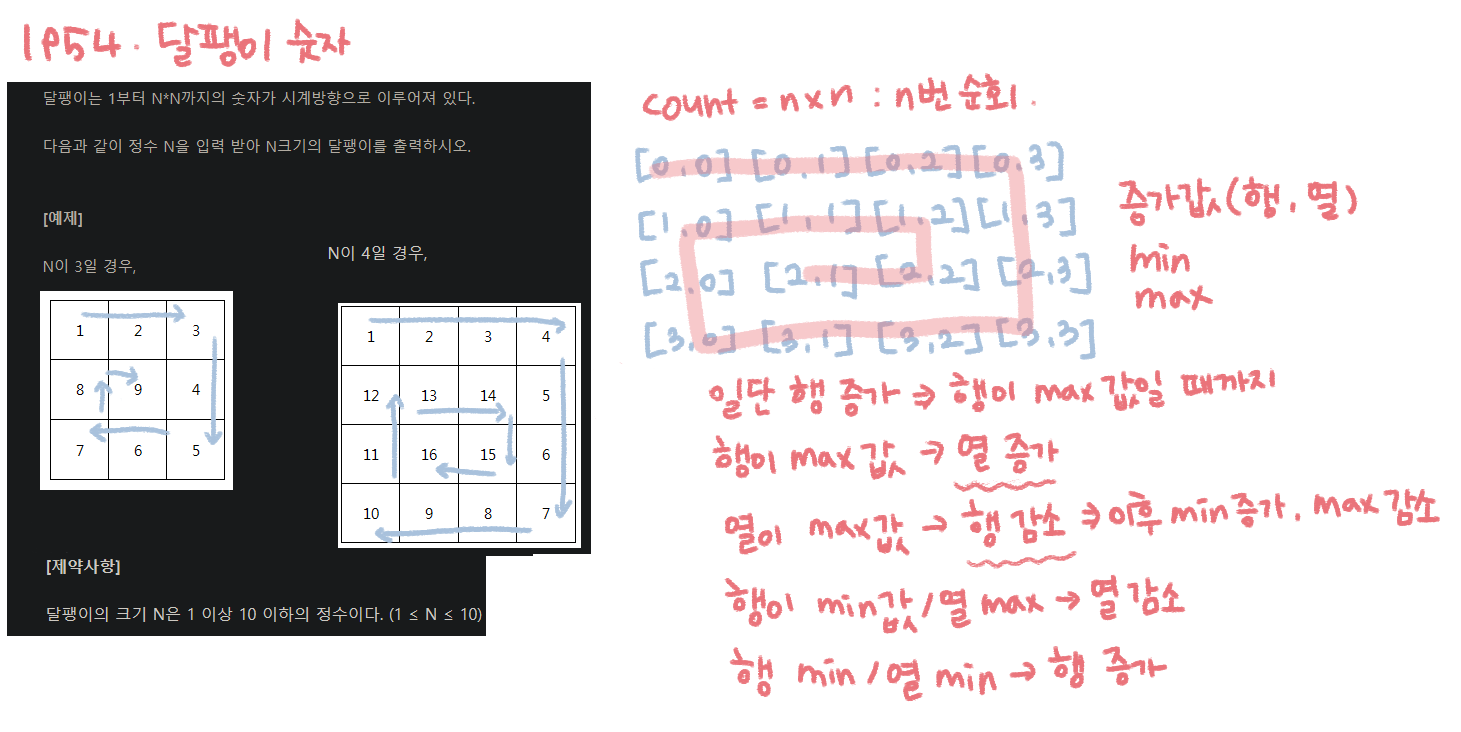 1954. 달팽이 숫자
달팽이는 1부터 N*N까지의 숫자가 시계방향으로 이루어져 있다.
다음과 같이 정수 N을 입력 받아 N크기의 달팽이를 출력하시오.
[예제]
N이 3일 경우,
1 2 3
8 9 4
7 6 5
N이 4일 경우,
1 2 3 4
12 13 14 5
11 16 15 6
10 9 8 7
[제약사항]
달팽이의 크기 N은 1 이상 10 이하의 정수이다. (1 ≤ N ≤ 10)
count = n x n : n번 순회.
[0,0] [0,1] [0,2] [0,3]
[1,0] [1,1] [1,2] [1,3]
[2,0] [2,1] [2,2] [2,3]
[3,0] [3,1] [3,2] [3,3]
증가값(행, 열)
min
max
일단 행 증가 → 행이 max 값일 때까지
행이 max 값 → 열 증가
열이 max값 → 행 감소 → 이후 min 증가, max 감소
행이 min값/열 max → 열 감소
행 min / 열 min → 행 증가